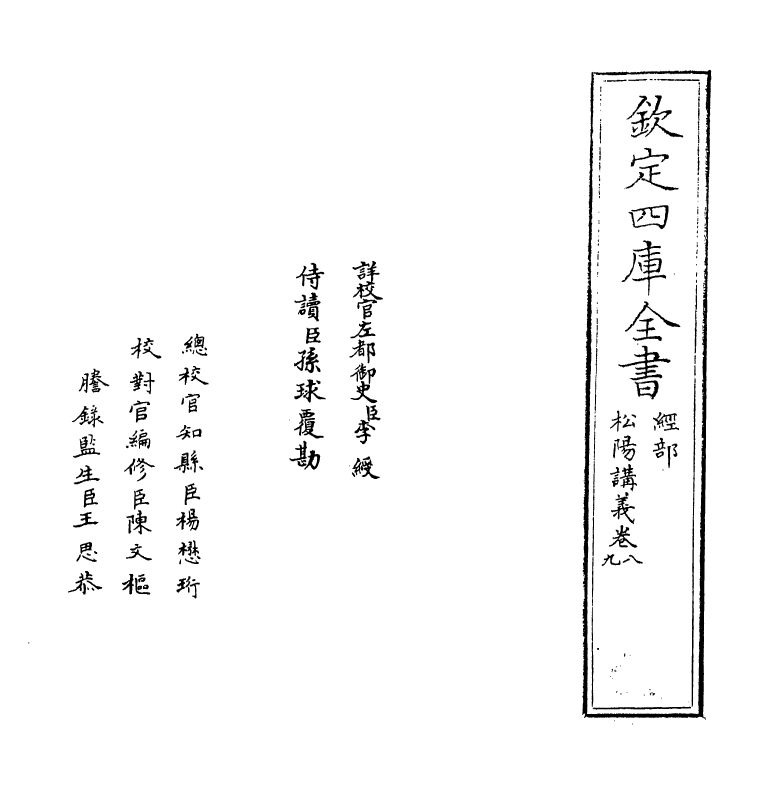 欽定四庫全書
經部
松陽講義卷八九
詳校官左都御史臣李綬
侍讀臣孫球覆勘
總校官知縣臣楊懋珩
校對官編修臣陳文樞
謄錄監生臣王思恭